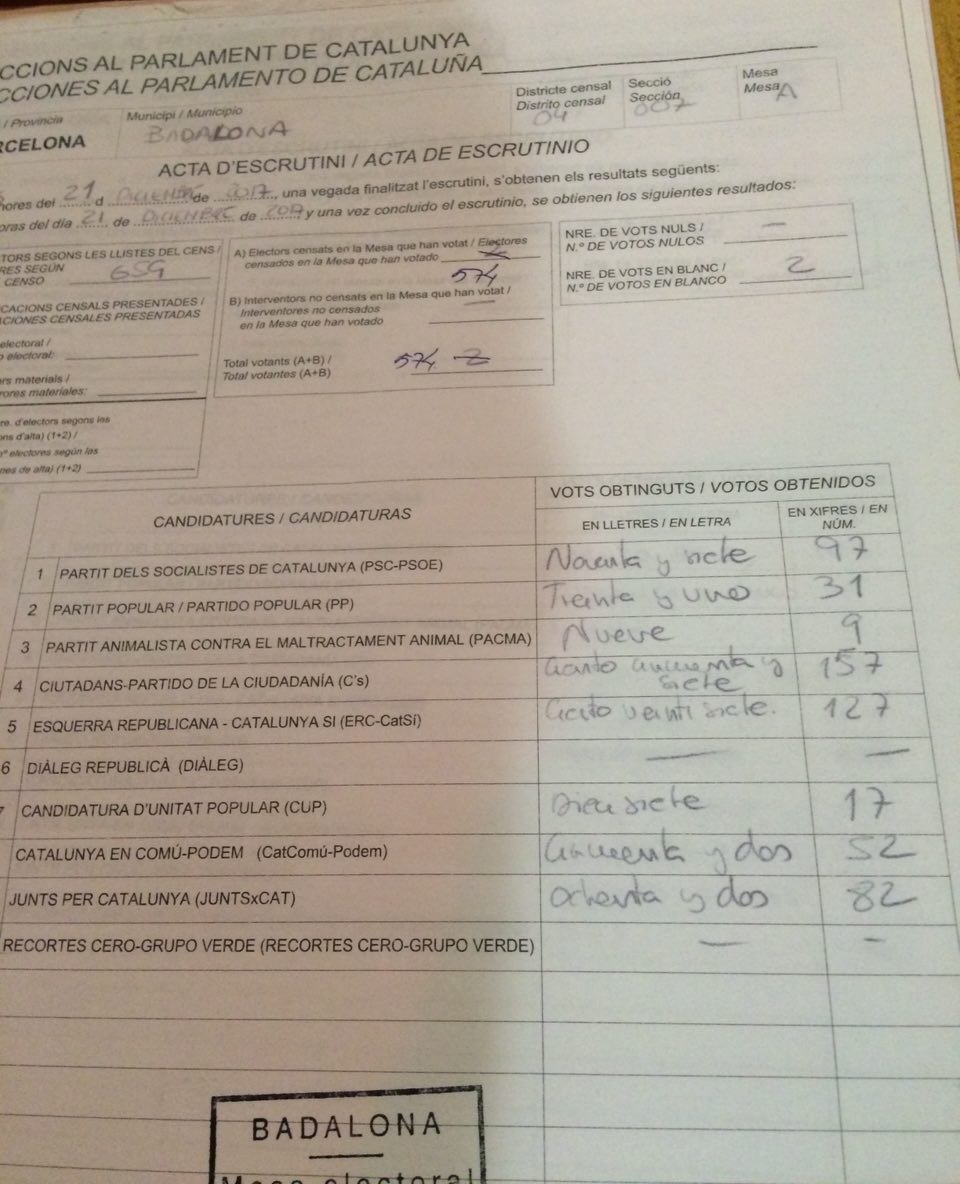 CCIONS AL PARLAMENT DE CATALUNYA
CCIONES AL PARLAMENTO DE CATALUÑA
/ Provincia
RCELONA
Municipi / Municipio
BADALONA
Districte censal
Distrito censal
04
Secció
Sección
007
Mesa
Mesa
A
ACTA D'ESCRUTINI / ACTA DE ESCRUTINIO
hores del 21 d DICIEMBRE de 2017, una vegada finalitzat l'escrutini, s'obtenen els resultats següents:
oras del día 21 de DICIEMBRE de 2017 y una vez concluido el escrutinio, se obtienen los siguientes resultados:
TORS SEGONS LES LLISTES DEL CENS /
RES SEGÚN
CENSO
CACIONS CENSALS PRESENTADES /
ACIONES CENSALES PRESENTADAS
electoral /
o electoral:
rs materials /
rores materiales:
re. d'electors segons les
ons d'alta) (1+2) /
nº electores según las
nes de alta) (1+2)
A) Electors censats en la Mesa que han votat / Electores
censados en la Mesa que han votado
574
B) Interventors no censats en la Mesa que han votat /
Interventores no censados
en la Mesa que han votado —
Total votants (A+B) /
Total votantes (A+B)
574
NRE. DE VOTS NULS /
N.º DE VOTOS NULOS —
NRE. DE VOTS EN BLANC /
N.º DE VOTOS EN BLANCO 2
CANDIDATURES / CANDIDATURAS
VOTS OBTINGUTS / VOTOS OBTENIDOS
EN LLETRES / EN LETRA
EN XIFRES / EN
NÚM.
1 PARTIT DELS SOCIALISTES DE CATALUNYA (PSC-PSOE) Noventa y siete 97
2 PARTIT POPULAR / PARTIDO POPULAR (PP) Treinta y uno 31
3 PARTIT ANIMALISTA CONTRA EL MALTRACTAMENT ANIMAL (PACMA) Nueve 9
4 CIUTADANS-PARTIDO DE LA CIUDADANÍA (C's) Ciento cincuenta y siete 157
5 ESQUERRA REPUBLICANA - CATALUNYA SI (ERC-CatSí) Ciento veintisiete. 127
6 DIÀLEG REPUBLICÀ (DIÀLEG) — —
7 CANDIDATURA D'UNITAT POPULAR (CUP) Diecisiete 17
CATALUNYA EN COMÚ-PODEM (CatComú-Podem) Cincuenta y dos 52
JUNTS PER CATALUNYA (JUNTSxCAT) Ochenta y dos 82
RECORTES CERO-GRUPO VERDE (RECORTES CERO-GRUPO VERDE) — —
BADALONA
Mesa electoral